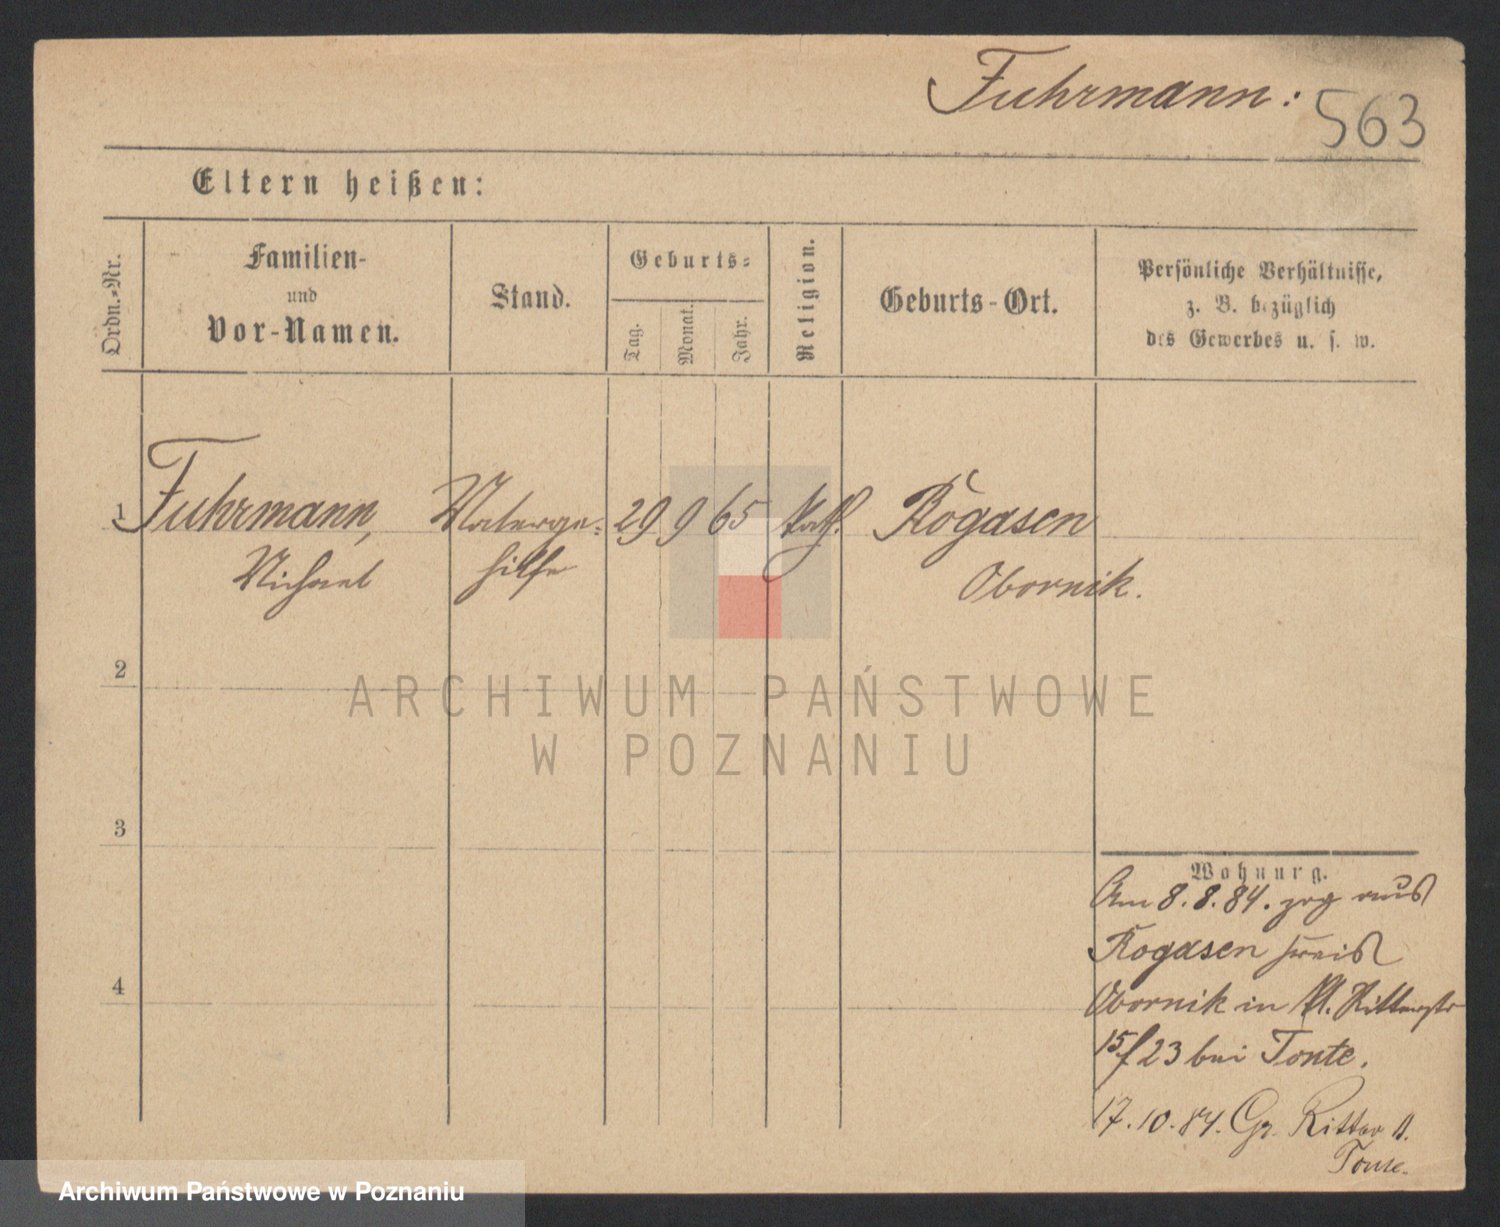 Fuhrmann: 563
Eltern heißen:
Ordn.-Nr.
Familien-
und
Vor-Namen.
Stand.
Geburts-
Tag.
Monat.
Jahr.
Religion.
Geburts-Ort.
Persönliche Verhältnisse,
z. B. bezüglich
des Gewerbes u. s. w.
1 Fuhrmann, Malerge= 29 9 65 kath. Rogasen
Michael hilfe Obornik.
2
3
4
Wohnung.
Am 8.8.84. zog aus
Rogasen Kreis
Obornik in Kl. Ritterstr
15/23 bei Tonte.
17.10.84. Gr. Ritter
ARCHIWUM PAŃSTWOWE
W POZNANIU
Archiwum Państwowe w Poznaniu